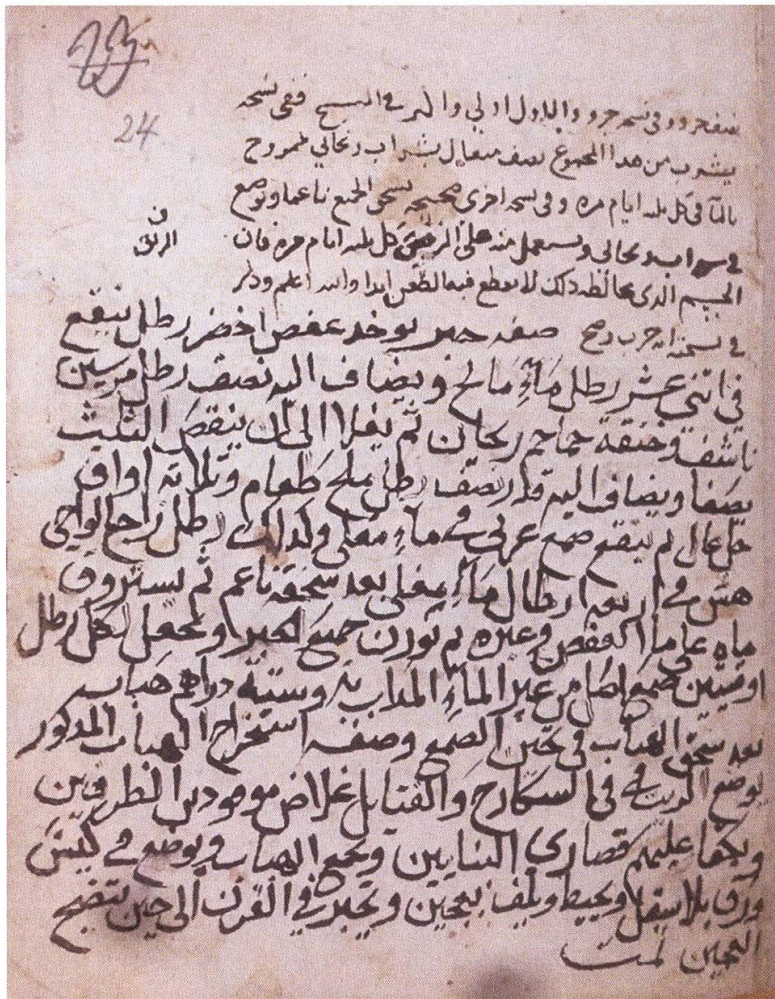 24
نصف جزو وفى نسخه جزو والاول اولي والله في النسخ ففى نسخه
يشرب من هذا المجموع نصف مثقال بشراب ريحاني ممزوج
بالماء في كل ثلثه ايام مره وفى نسخه اخرى صحيحه يسحق الجميع ناعما ويوضع
في شراب ريحاني ويستعمل منه على الريق كل ثلثه ايام مره فان
في الريق
الجسم الذى يخالطه ذلك لا يقطع فيه الطعن ابدا والله اعلم وذكر
في نسخه انه جرب وصح صفه حبر يوخد عفص اخضر رطل ينقع
في اثني عشر رطل ماءٍ مالح ويضاف اليه نصف رطل مرسين
ناشف وخنقة حماحم ريحان ثم يغلا الى ان ينقص الثلث
يصفا ويضاف اليه قدر نصف رطل ملح طعام وثلاثه اواق
خل عال ثم ينقع صمغ عربي في ماءٍ مغلى وكذلك رطل زاج
هش في اربعه ارطال ماءٍ مغلى بعد سحقه ناعم ثم يستروق
ماه على ما العفص وغيره ثم يوزن جميع الحبر ويجعل لكل رطل
اوقيتين صمغ من غير الماءِ المداب به وستة دراهم هباب
بعد سحق الهباب في عين الصمغ وصفه استخراج الهباب المدكور
يوضع الزيت في السكارج والفتايل غلاض موجودين الطرفين
ويكفا عليهم قصارى البنايين ويجمع الهباب ويوضع في كيس
ورق بلا سقل ويخيط ويلف بعجين ويخبز في الفرن الى حين ينضج
العجين تمت